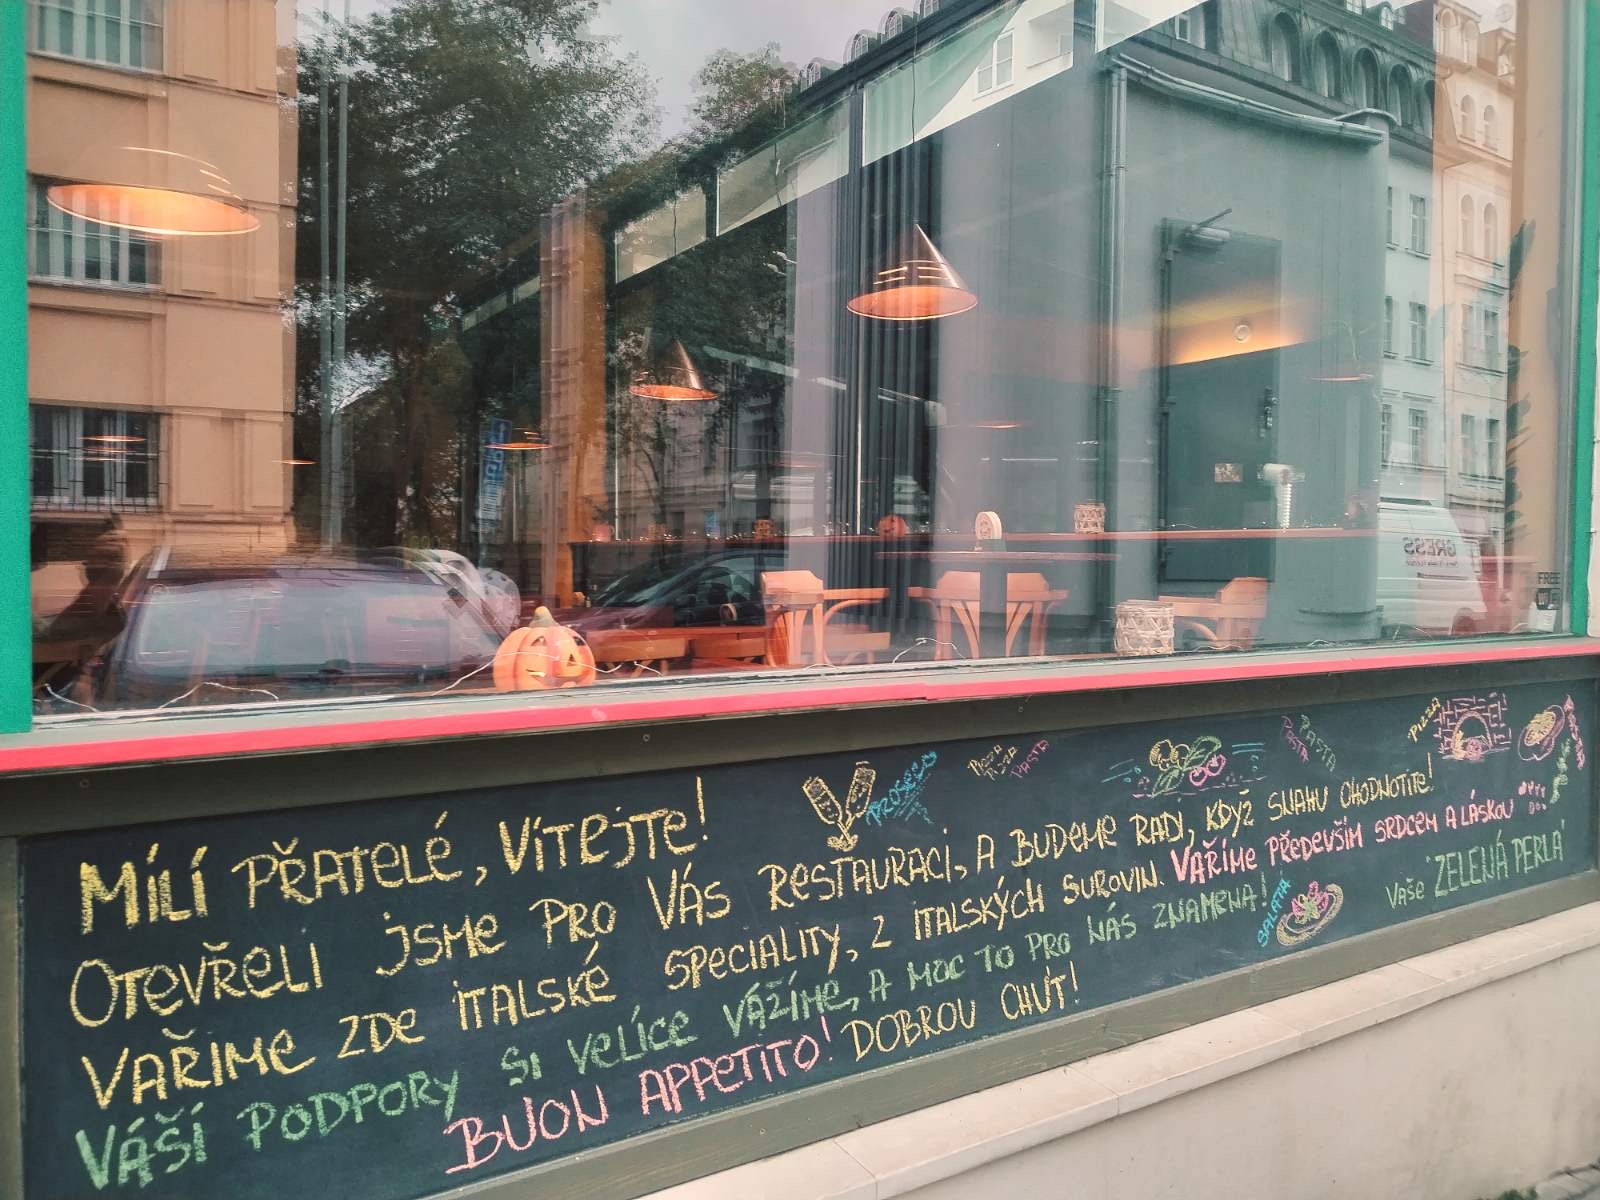 MÍLÍ PŘATELÉ, VÍTEJTE!
OTEVŘELI JSME PRO VÁS RESTAURACI, A BUDEME RÁDI, KDYŽ SNAHU OHODNOTÍTE!
VAŘÍME ZDE ITALSKÉ SPECIALITY, Z ITALSKÝCH SUROVIN. VAŘÍME PŘEDEVŠÍM SRDCEM A LÁSKOU
VÁŠÍ PODPORY SI VELÍCE VÁŽÍME, A MOC TO PRO NÁS ZNAMENÁ!
BUON APPETITO! DOBROU CHUŤ!
Vaše "ZELENÁ PERLA"
PROSECCO
PIZZA
PIZZA
PASTA
PASTA
PASTA
PIZZA
SALATA
FREE